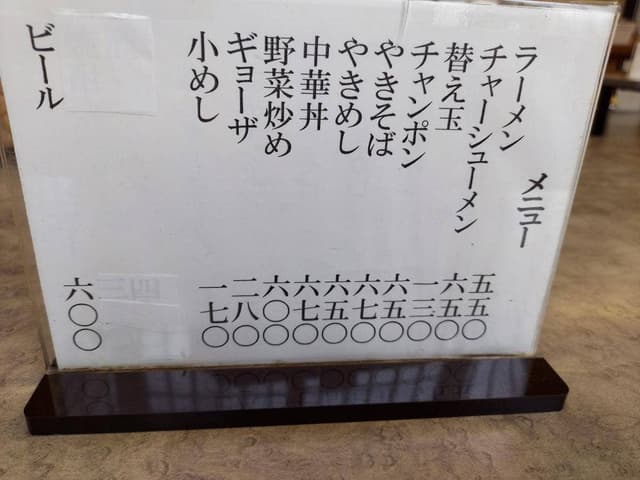 メニュー
ラーメン 五五〇
チャーシューメン 六五〇
替え玉 一三〇
チャンポン 六五〇
やきそば 六七〇
やきめし 六五〇
中華丼 六七〇
野菜炒め 六〇〇
ギョーザ 二八〇
小めし 一七〇
ビール 六〇〇